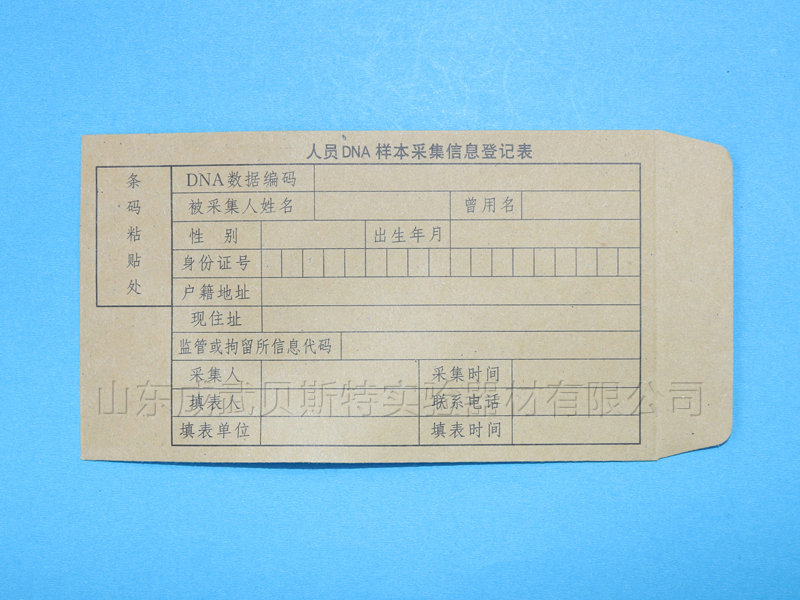 人员DNA样本采集信息登记表
条码粘贴处
DNA数据编码
被采集人姓名 曾用名
性 别 出生年月
身份证号
户籍地址
现住址
监管或拘留所信息代码
采集人 采集时间
填表人 联系电话
填表单位 填表时间
山东成武贝斯特实验器材有限公司